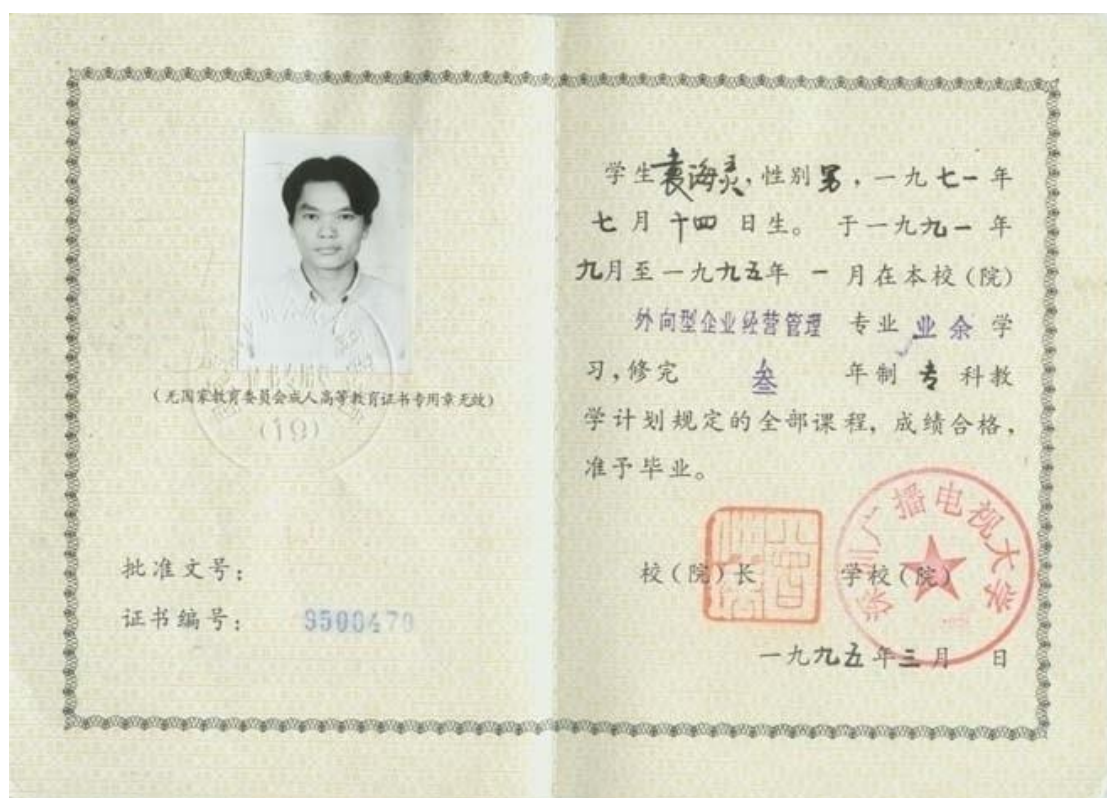 (无国家教育委员会成人高等教育证书专用章无效)
(19)
批准文号：
证书编号： 9500470
学生袁海灵，性别男，一九七一年
七月十四日生。于一九九一年
九月至一九九五年一月在本校(院)
外向型企业经营管理 专业 业余 学
习，修完 叁 年制 专 科教
学计划规定的全部课程，成绩合格，
准予毕业。
校(院)长 学校(院)
广播电视大学
一九九五年三月 日